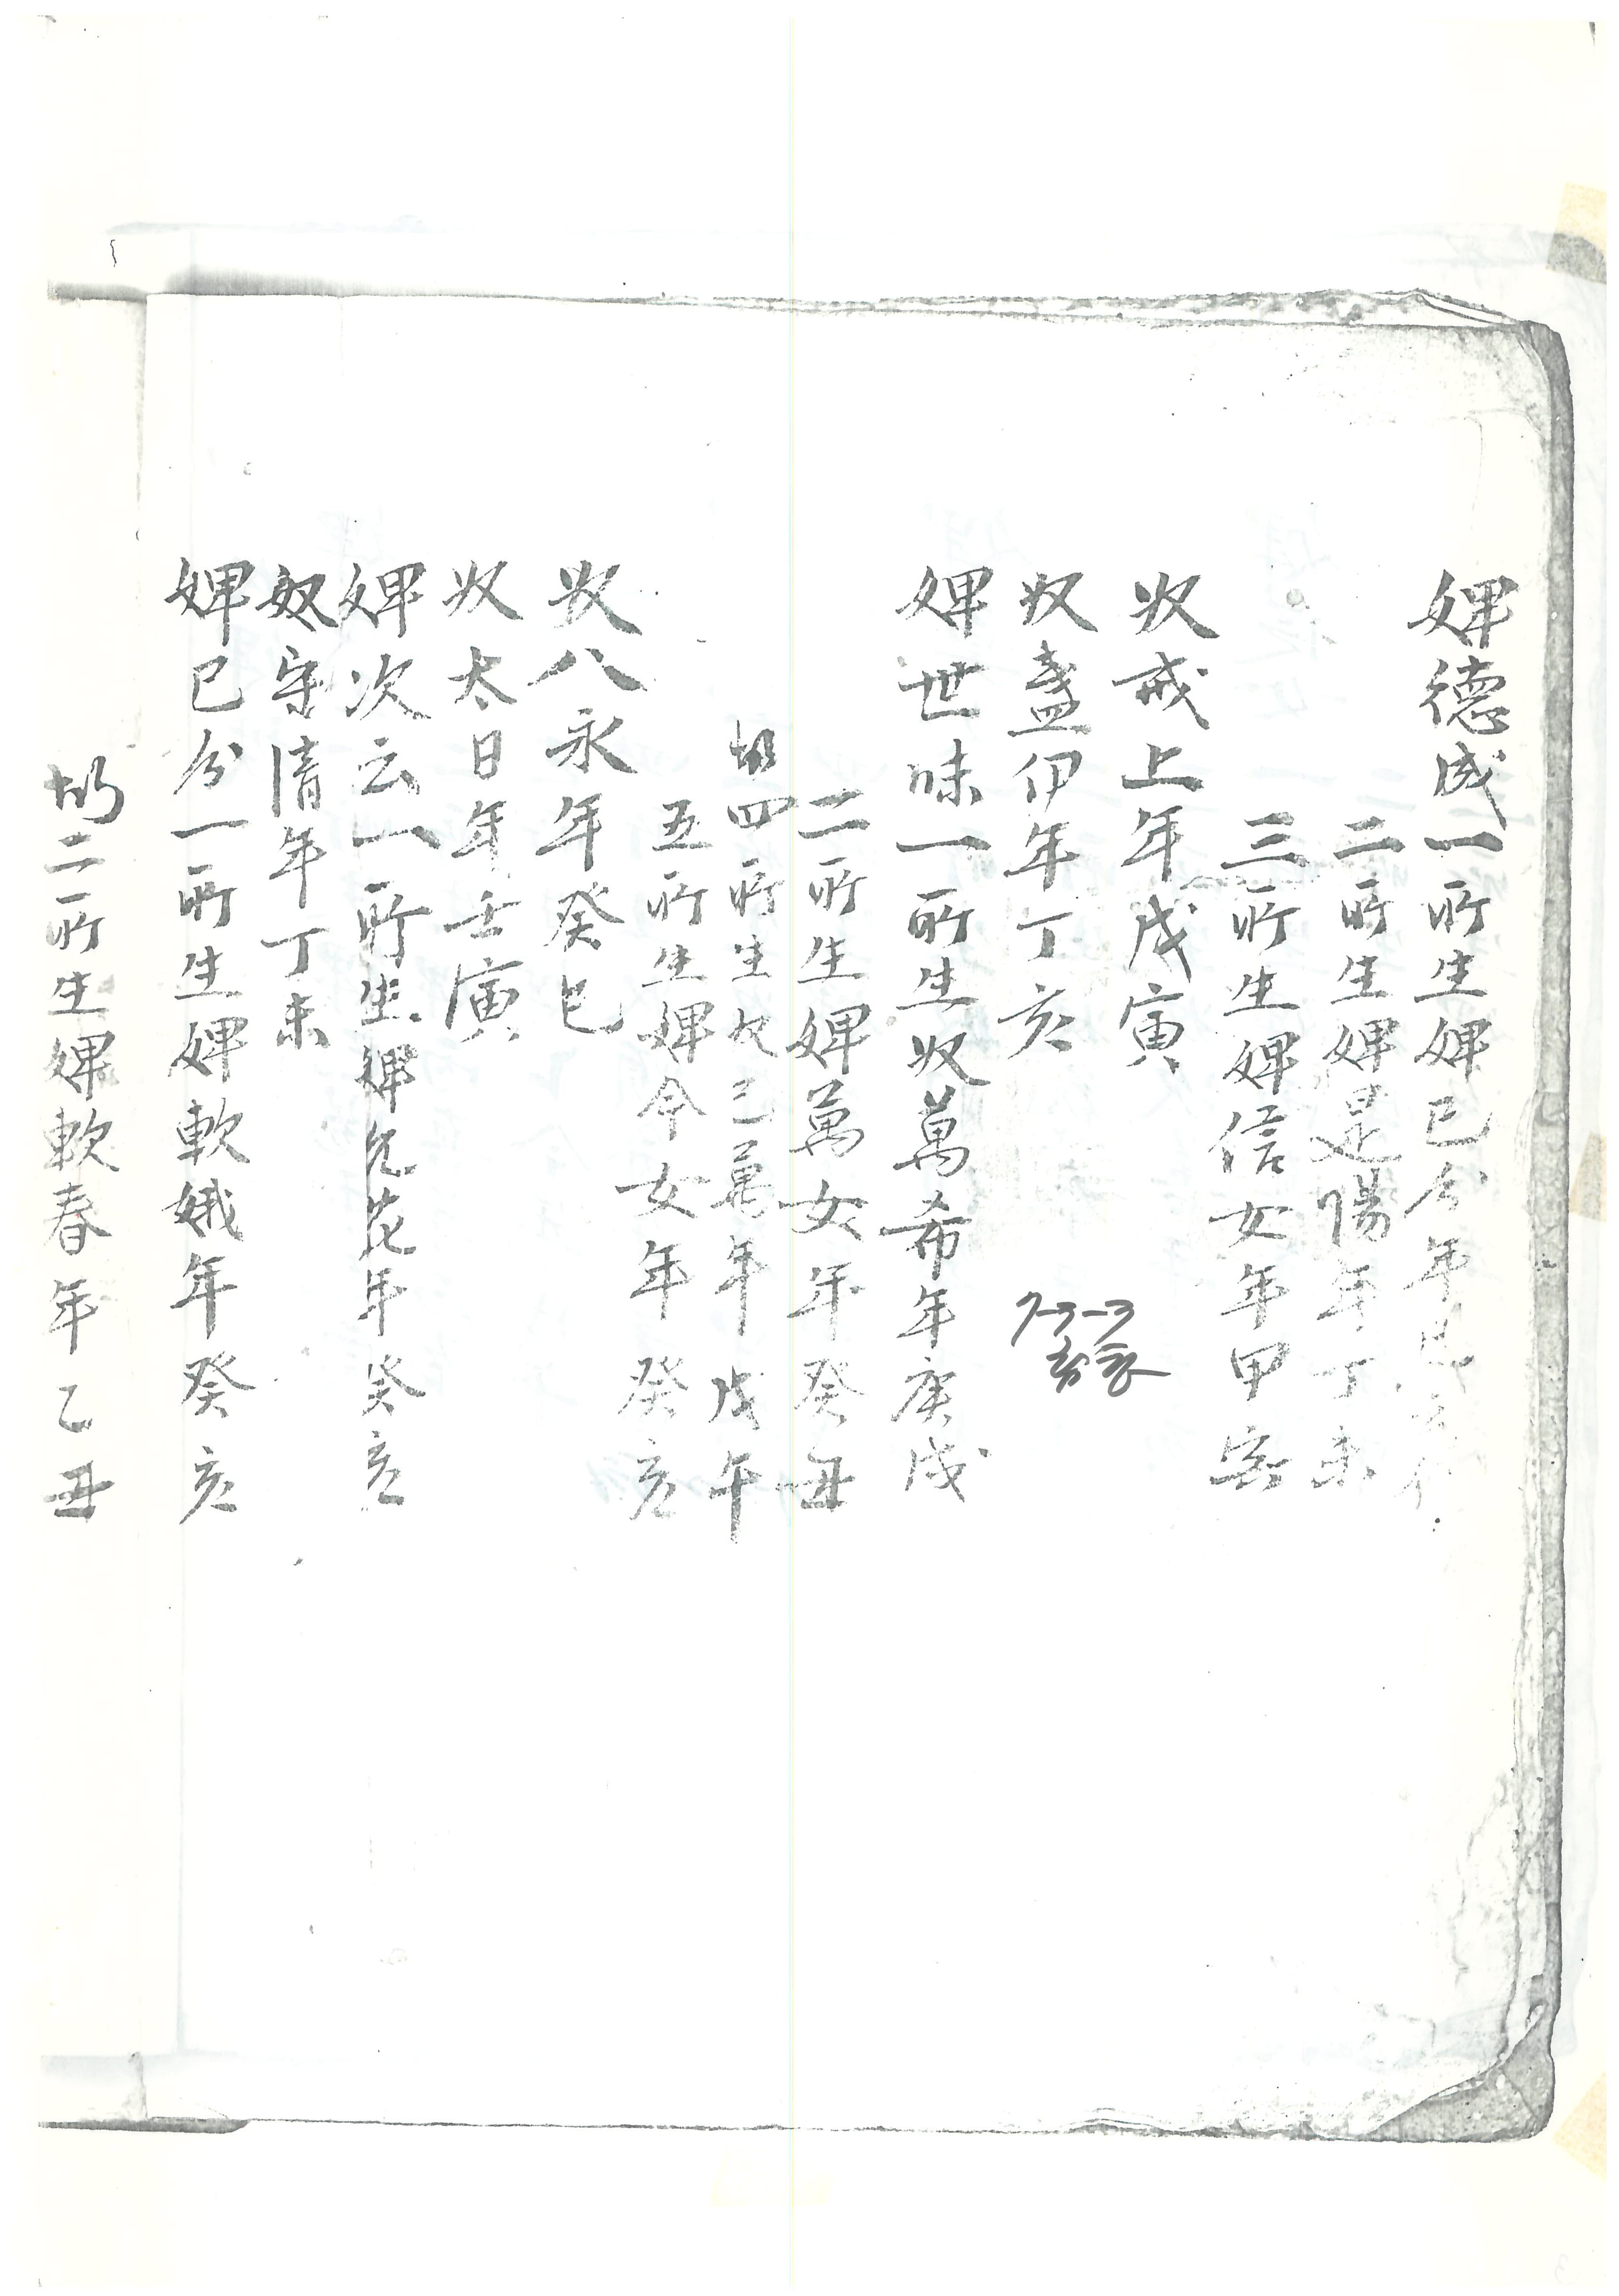 婢德成一所生婢已今年
二所生婢是陽年丁未
三所生婢信女年甲寅
奴戒上年戊寅
奴盞伊年丁亥
7-3-3
婢世味一所生奴萬希年庚戌
二所生婢萬女年癸丑
故四所生奴己萬年戊午
五所生婢今女年癸亥
奴八永年癸巳
奴太日年壬寅
婢次云一所生婢允花年癸亥
奴守清年丁未
婢已分一所生婢軟娥年癸亥
故二所生婢軟春年乙丑